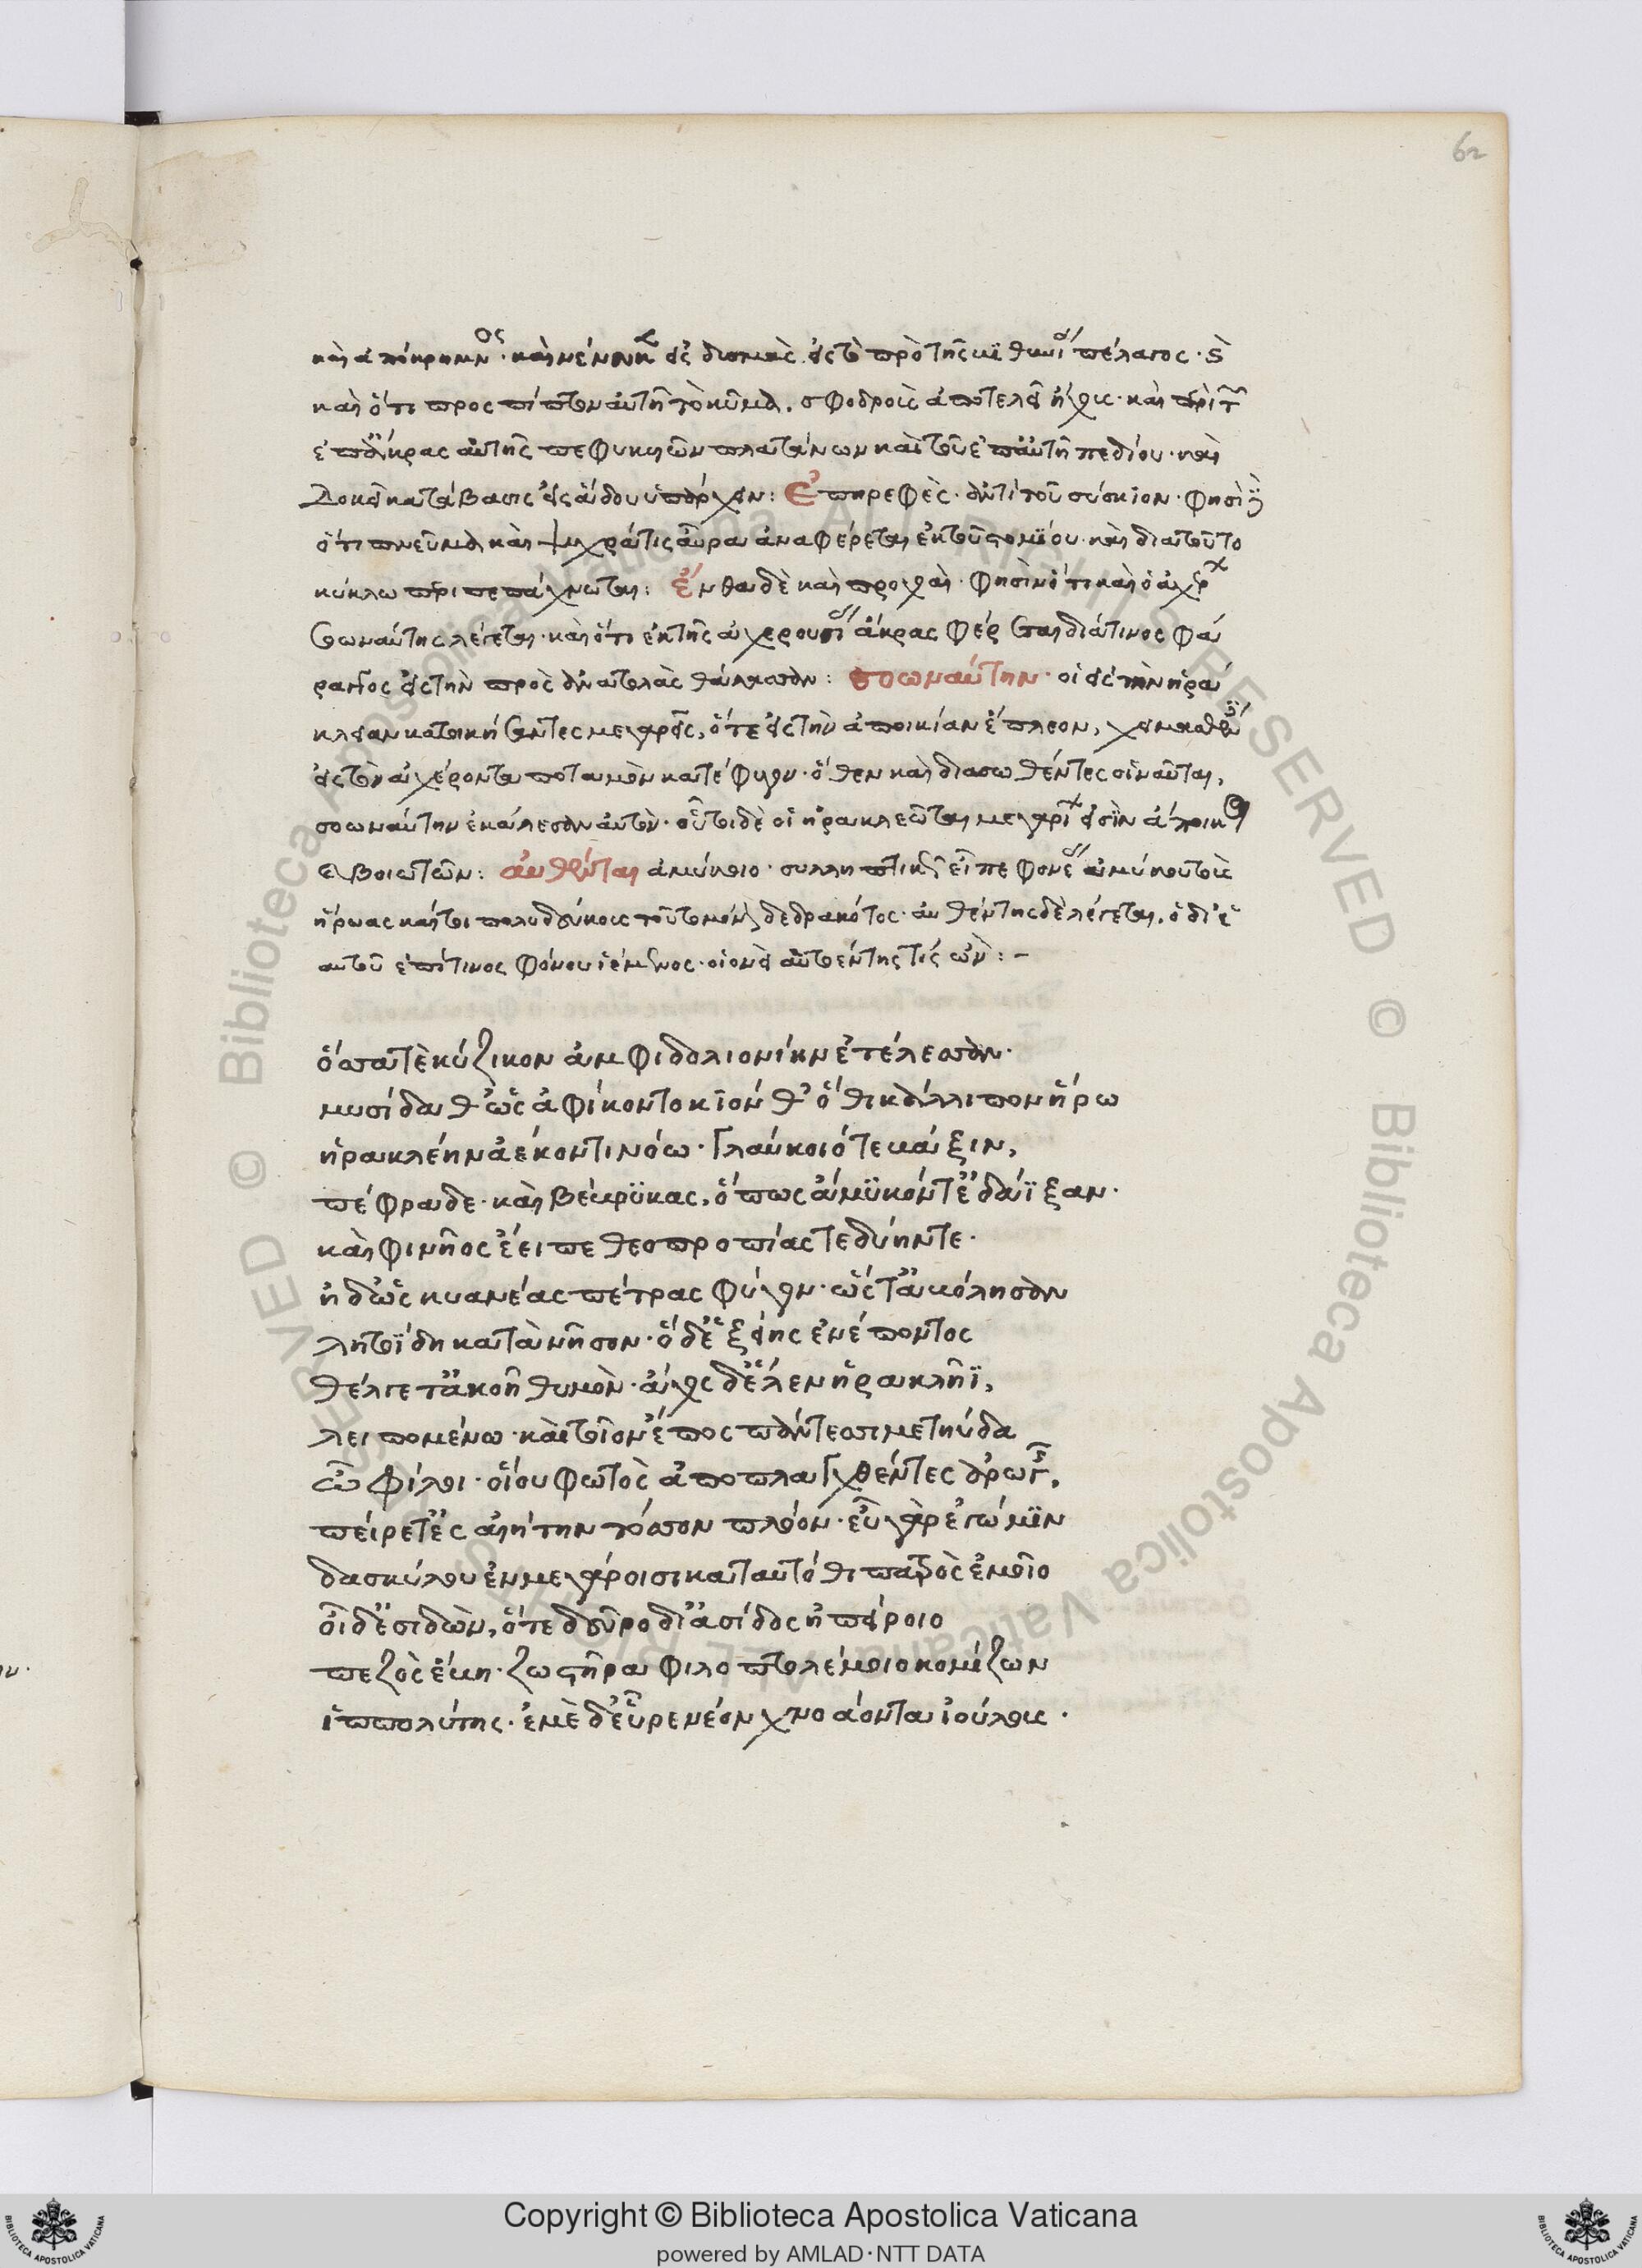 62
καὶ ἀπόκρημνος. καὶ νένευκεν εἰς δυσμὰς. εἰς τὸ πρὸ τῆς βιθυνίας πέλαγος.
καὶ ὅτι προσπίπτον αὐτῆ τὸ κῦμα, σφοδροὺς ἀποτελεῖ ἤχους. καὶ περὶ τῶν
ἐπάκρας αὐτῆς πεφυκυιῶν πλατάνων καὶ τοῦ ἐπαὐτῆ πεδίου. καὶ
δοκεῖ κατάβασις εἰς ἅδου ὑπάρχειν: Ἐπηρεφὲς. ἀντὶ τοῦ σύσκιον. φησὶ δὲ
ὅτι πνεῦμα καὶ ψυχρά τις αὔρα ἀναφέρεται ἐκ τοῦ στομίου. καὶ διατοῦτο
κύκλω περιπεπάχνωται: ἔνθα δὲ καὶ προχοαὶ. φησὶν ὅτι καὶ ὁ ἀχέρων
σοωναύτης λέγεται. καὶ ὅτι ἐκ τῆς ἀχερουσίας ἄκρας φέρεται διά τινος φά
ραγγος εἰς τὴν πρὸς ἀνατολὰς θάλασσαν: σοωναύτην. οἱ εἰς τὴν ἡρά
κλειαν κατοικήσαντες μεγαρεῖς, ὅτε εἰς τὴν ἀποικίαν ἔπλεον, χειμασθέντες
εἰς τὸν ἀχέροντα ποταμὸν κατέφυγον. ὅθεν καὶ διασωθέντες οἱ ναῦται,
σοωναύτην ἐκάλεσαν αὐτὸν. οὗτοι δὲ οἱ ἡρακλεῶται μεγαρέων εἰσὶν ἄποικοι
ἐ βοιωτῶν: αὐθένται ἀμύκοιο. συλληπτικῶς εἶπε φονέας ἀμύκου τοὺς
ἥρωας καίτοι πολυδεύκους τοῦτο μόνου δεδρακότος. αὐθέντης δὲ λέγεται, ὁ δι' ἑ
αυτοῦ ἐπί τινος φόνου ἱέμενος. οἱονεὶ αὐτοέντης τίς ὢν: –
ὅσσα τὲ κύζικον ἀμφιδολιονίην ἐτέλεσσαν.
μυσίδα θ' ὡς ἀφίκοντο κίον θ' ὅθι κάλλιπον ἥρω
ἡρακλέην ἀέκοντι νόω. Γλαύκοιό τε βάξιν,
πέφραδε. καὶ βέβρϋκας, ὅπως ἄμϋκόντ' ἐδάϊξαν.
καὶ φινῆος ἔειπε θεοπροπίας τε δύην τε.
ἠδ' ὡς κυανέας πέτρας φύγον. ὥς τ' ἀβόλησαν
λητοΐδη κατὰ νῆσον. ὁ δ' ἑξείης ἐνέποντος
θέλγετ' ἀκοῆ θυμὸν. ἄχος δ' ἕλεν ἡρακλῆϊ,
λειπομένω. καὶ τοῖον ἔπος πάντεσσι μετηύδα
ὦ φίλοι. οἵου φωτὸς ἀποπλαγχθέντες ἀρωγῆς,
πείρετ' ἐς αἰήτην τόσσον πλόον. εὖ γὰρ ἐγώ μιν
δασκύλου ἐν μεγάροισι καταυτόθι πατρὸς ἐμοῖο
οἶδ' ἐσιδὼν, ὅτε δεῦρο δι' ἀσίδος ἠπείροιο
πεζὸς ἔβη. ζωστῆρα φιλοπτολέμοιο κομίζων
ἱππολύτης. ἐμὲ δ' εὗρε νέον χνοάοντα ἰούλους.
Copyright © Biblioteca Apostolica Vaticana
powered by AMLAD·NTT DATA